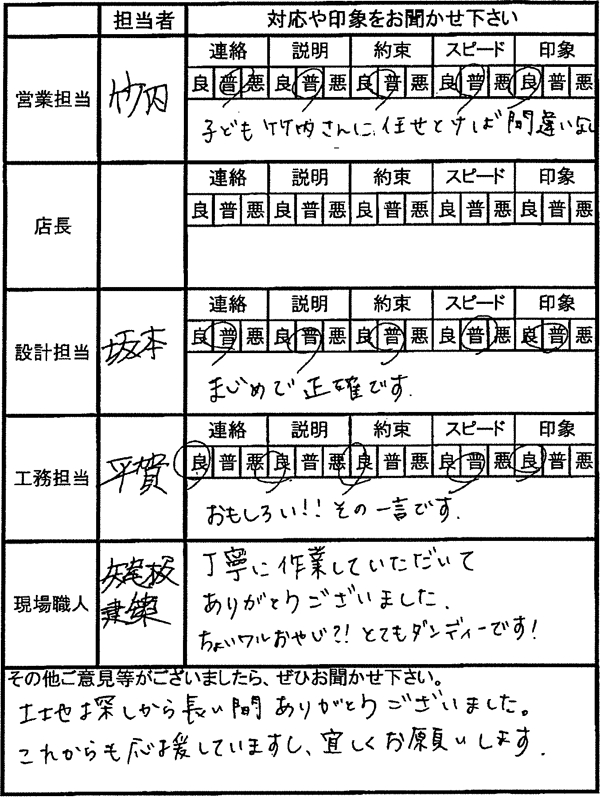 担当者 対応や印象をお聞かせ下さい
連絡 説明 約束 スピード 印象
営業担当 竹内 良 普 悪 良 普 悪 良 普 悪 良 普 悪 良 普 悪
子ども 竹内さんに任せとけば間違いなし
連絡 説明 約束 スピード 印象
店長 良 普 悪 良 普 悪 良 普 悪 良 普 悪 良 普 悪
連絡 説明 約束 スピード 印象
設計担当 坂本 良 普 悪 良 普 悪 良 普 悪 良 普 悪 良 普 悪
まじめで正確です.
連絡 説明 約束 スピード 印象
工務担当 平賀 良 普 悪 良 普 悪 良 普 悪 良 普 悪 良 普 悪
おもしろい!! その一言です.
現場職人
建築
丁寧に作業していただいて
ありがとうございました.
ちょいワルおやじ?! とてもダンディーです!
その他ご意見等がございましたら、ぜひお聞かせ下さい。
土地探しから長い間ありがとうございました。
これからも応援していますし、宜しくお願いします.